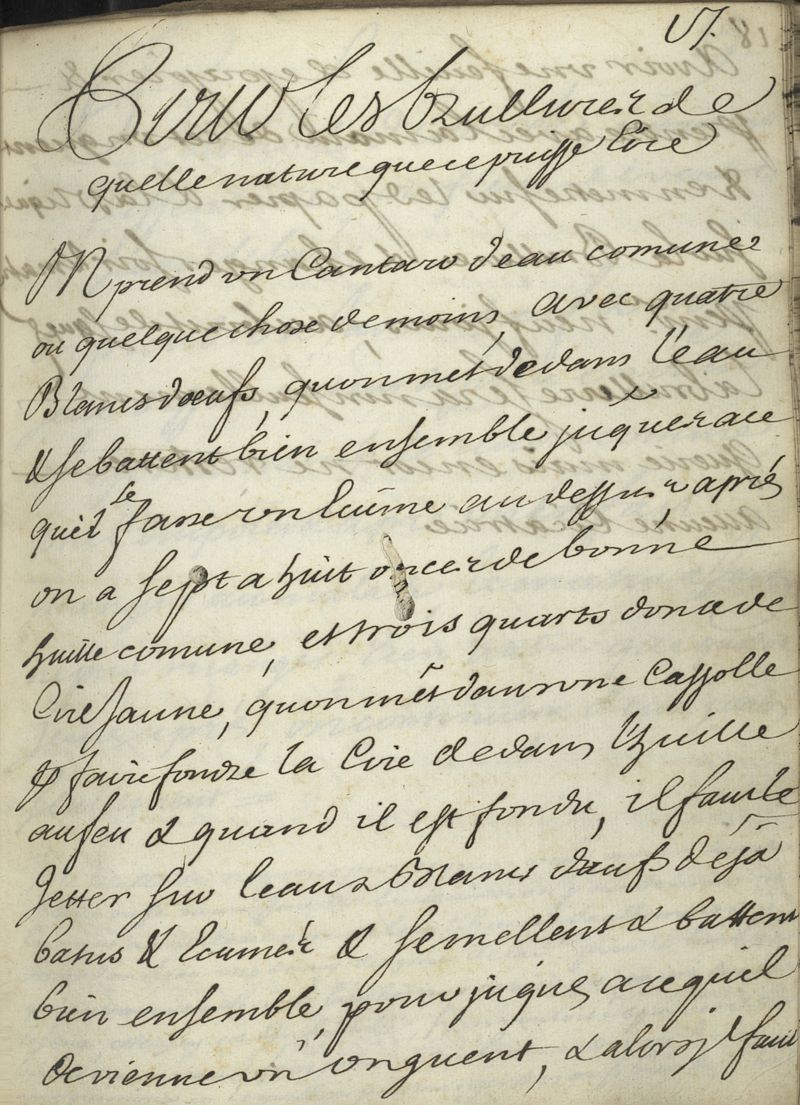 17.
Pour les brullures de
quelle nature que ce puisse Etre
On prend un Cantaro d'eau comunes
ou quelque chose de moins, avec quatre
Blancs dœufs, quon mét dedans l'eau
& se battent bien ensemble juques a ce
quil se fasse un lécume au dessus, aprés
on a sept a huit onces de bonne
huille comune, et trois quarts donce de
Cire Jaune, quon mêt dans une Cassolle
p faire fondre la Cire dedans l'huille
au feu & quand il est fondu, il faut le
Jetter sur leau & Blancs d'œufs déjà
batus & Ecumés & se mellent & battent
bien ensemble, pour juques a ce quil
devienne un onguent, & alors jl faut